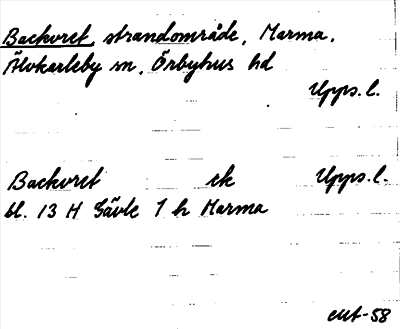 Backvret, strandområde, Marma,
Älvkarleby sn, Örbyhus hd
Upps. l.
Backvret ek Upps. l.
bl. 13 H Gävle 1 h Marma
-58